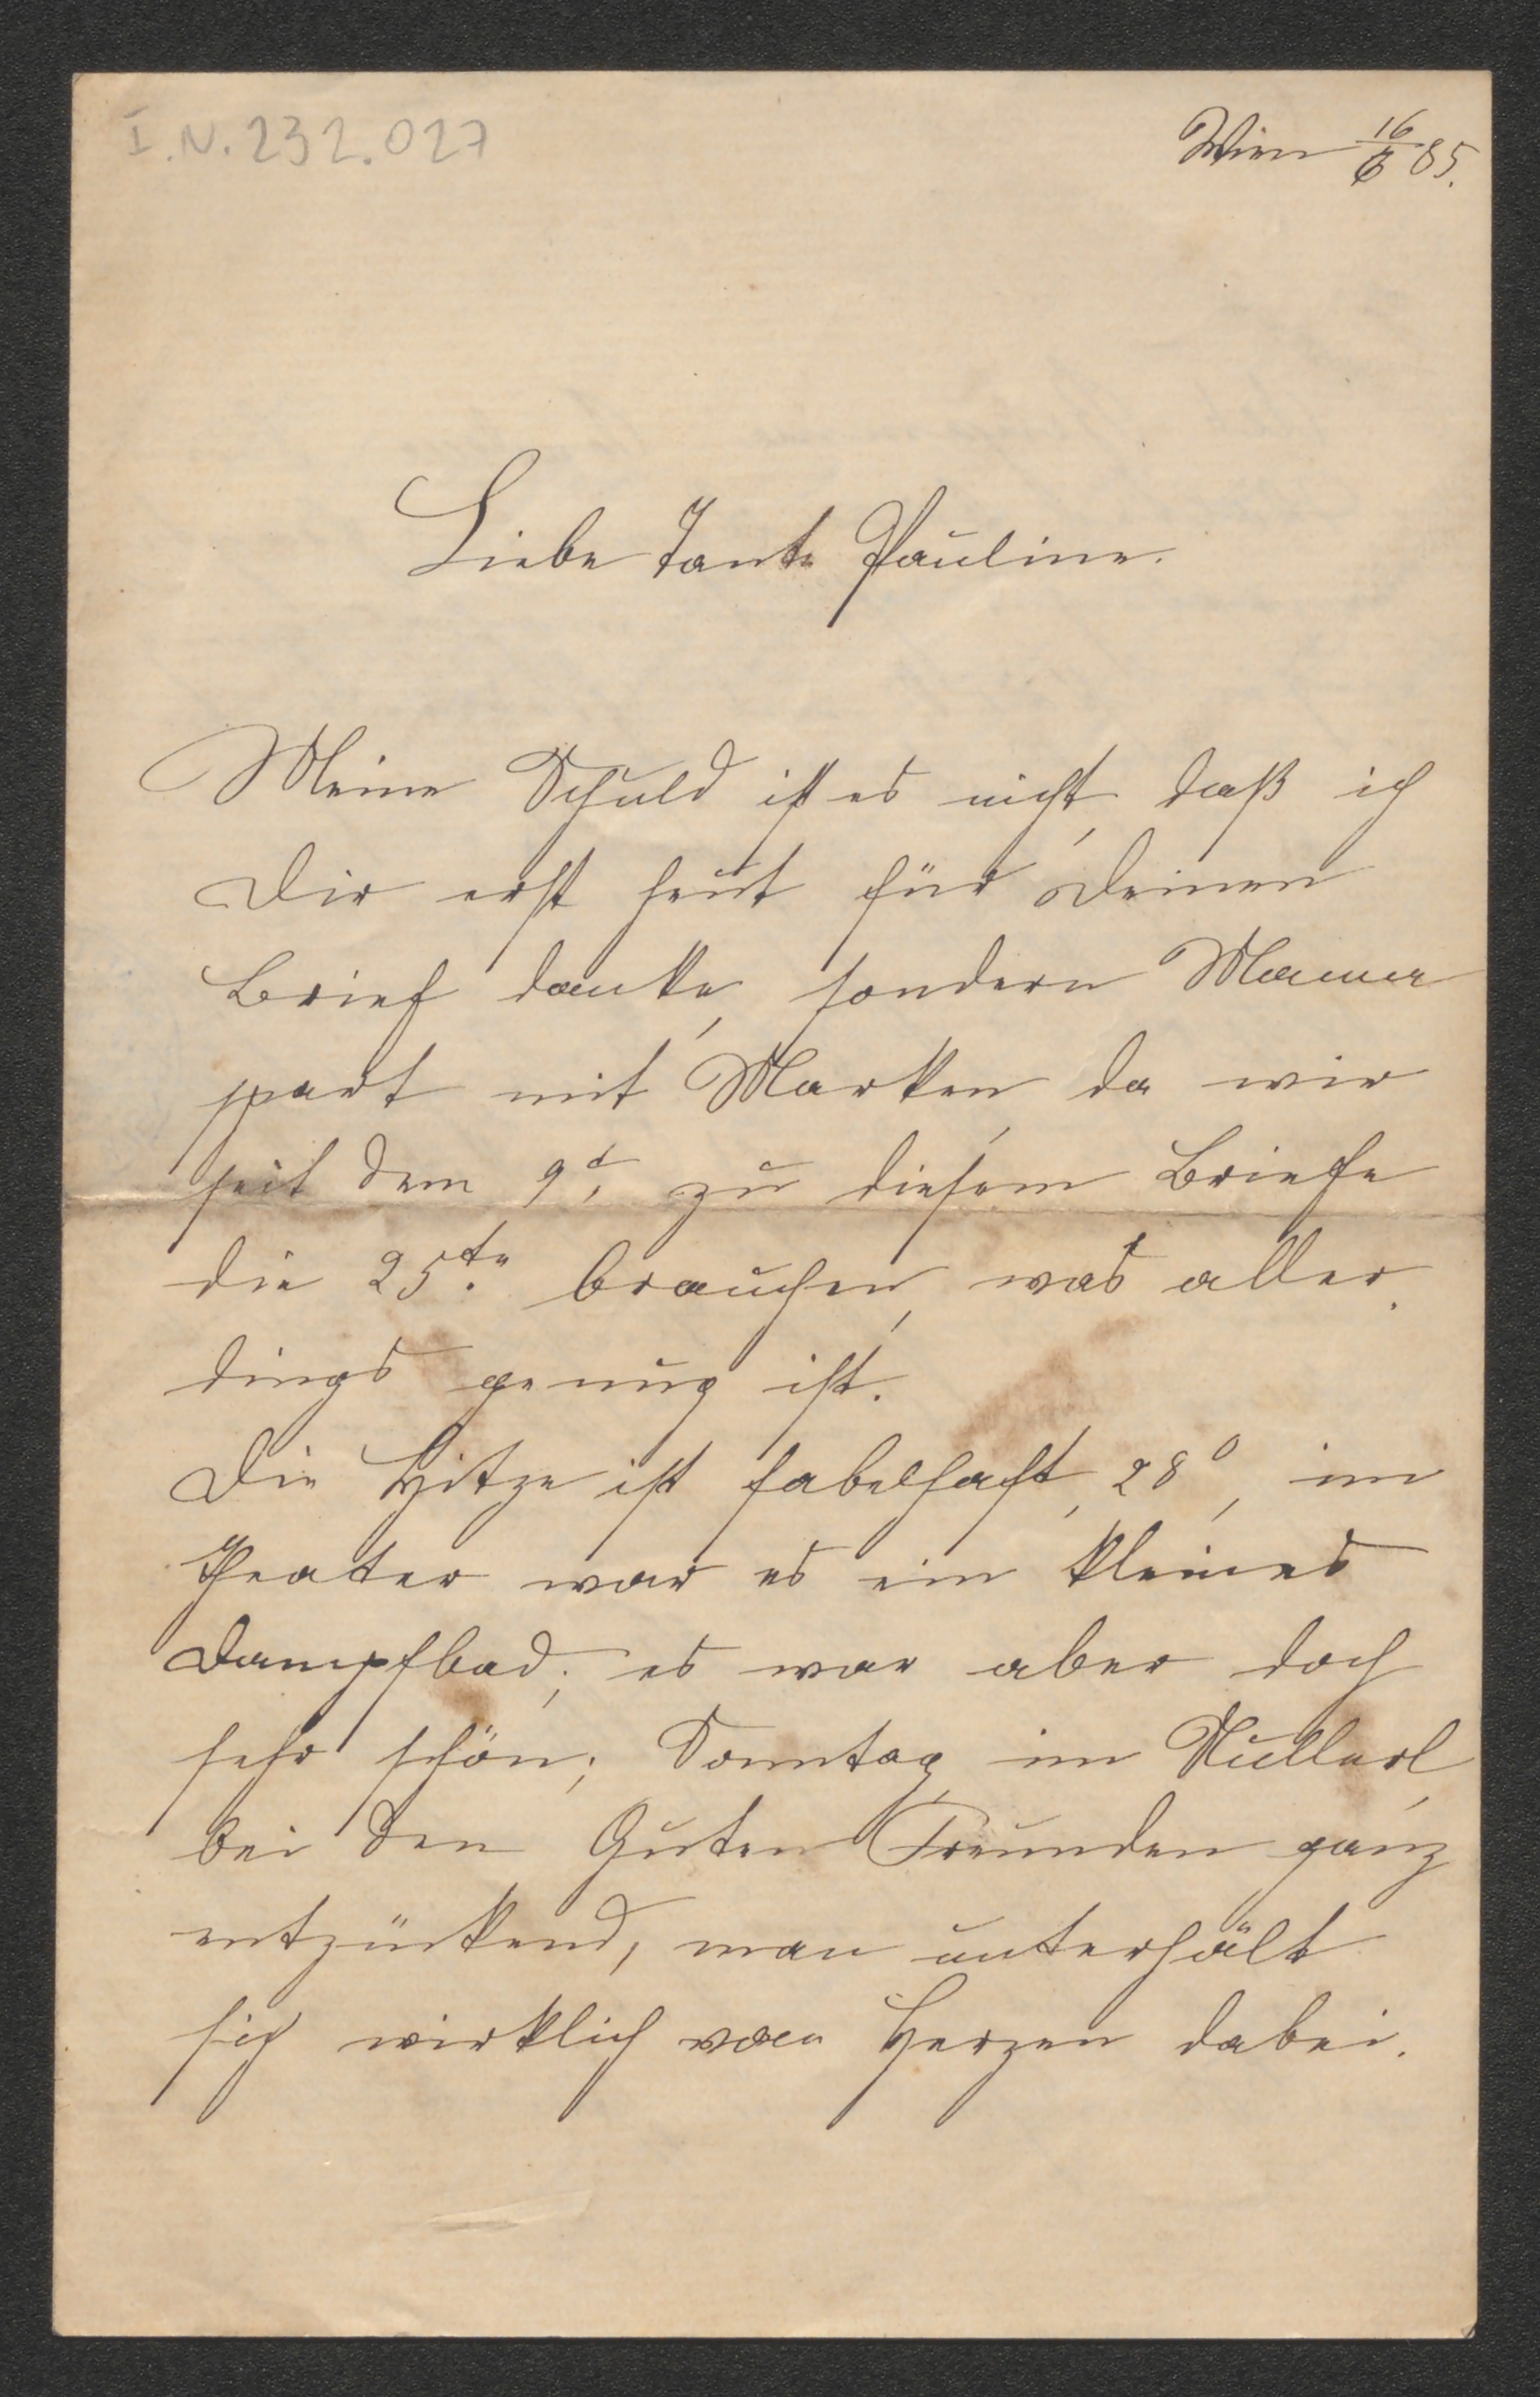 I.N. 232.027
Wien 16/6 85.
Liebe Tante Pauline.
Meine Schuld ist es nicht, daß ich
Dir erst heut für Deinen
Brief danke, sondern Mama
spart mit Marken, da wir
seit dem 9t, zu diesem Briefe
die 25te brauchen, was aller
dings genug ist.
Die Hitze ist fabelhaft, 28°, im
Theater war es ein kleines
Dampfbad; es war aber doch
sehr schön; Sonntag im Nullerl,
bei den Guten Freunden ganz
entzückend, man unterhält
sich wirklich von Herzen dabei.